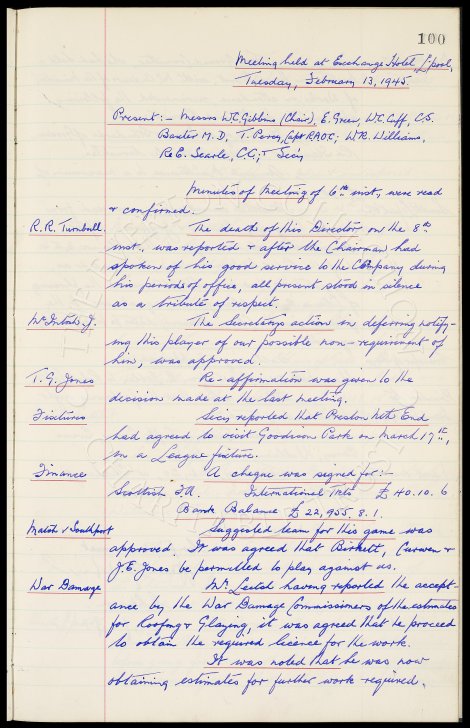 100
Meeting held at Exchange Hotel L'pool,
Tuesday, February 13, 1945.
Present:- Messrs W.C. Gibbins (Chair), E. Green, W.C. Cuff, C.S.
Baxter M.D, T. Percy, Capt RAOC; W.R. Williams,
R.E. Searle, C.C; & Secy
Minutes of Meeting of 6th inst, were read
& confirmed.
R.R. Turnbull. The death of this Director on the 8th
inst. was reported & after the Chairman had
spoken of his good service to the Company during
his periods of office, all present stood in silence
as a tribute of respect.
McIntosh J. The Secretary's action in deferring notify-
ing this player of our possible non-requirement of
him, was approved.
T.G. Jones Re-affirmation was given to the
decision made at the last meeting.
Fixtures Secy reported that Preston Nth End
had agreed to visit Goodison Park on March 17th,
in a League fixture.
Finance A cheque was signed for:-
Scottish F.A. International Tkts £40.10.6
Bank Balance £22,955.8.1.
Match v Southport Suggested team for this game was
approved. It was agreed that Birkett, Curwen &
J.E. Jones be permitted to play against us.
War Damage Mr. Leitch having reported the accept-
ance by the War Damage Commissioners of the estimates
for Roofing & Glazing, it was agreed that he proceed
to obtain the required licence for the work.
It was noted that he was now
obtaining estimates for further work required.